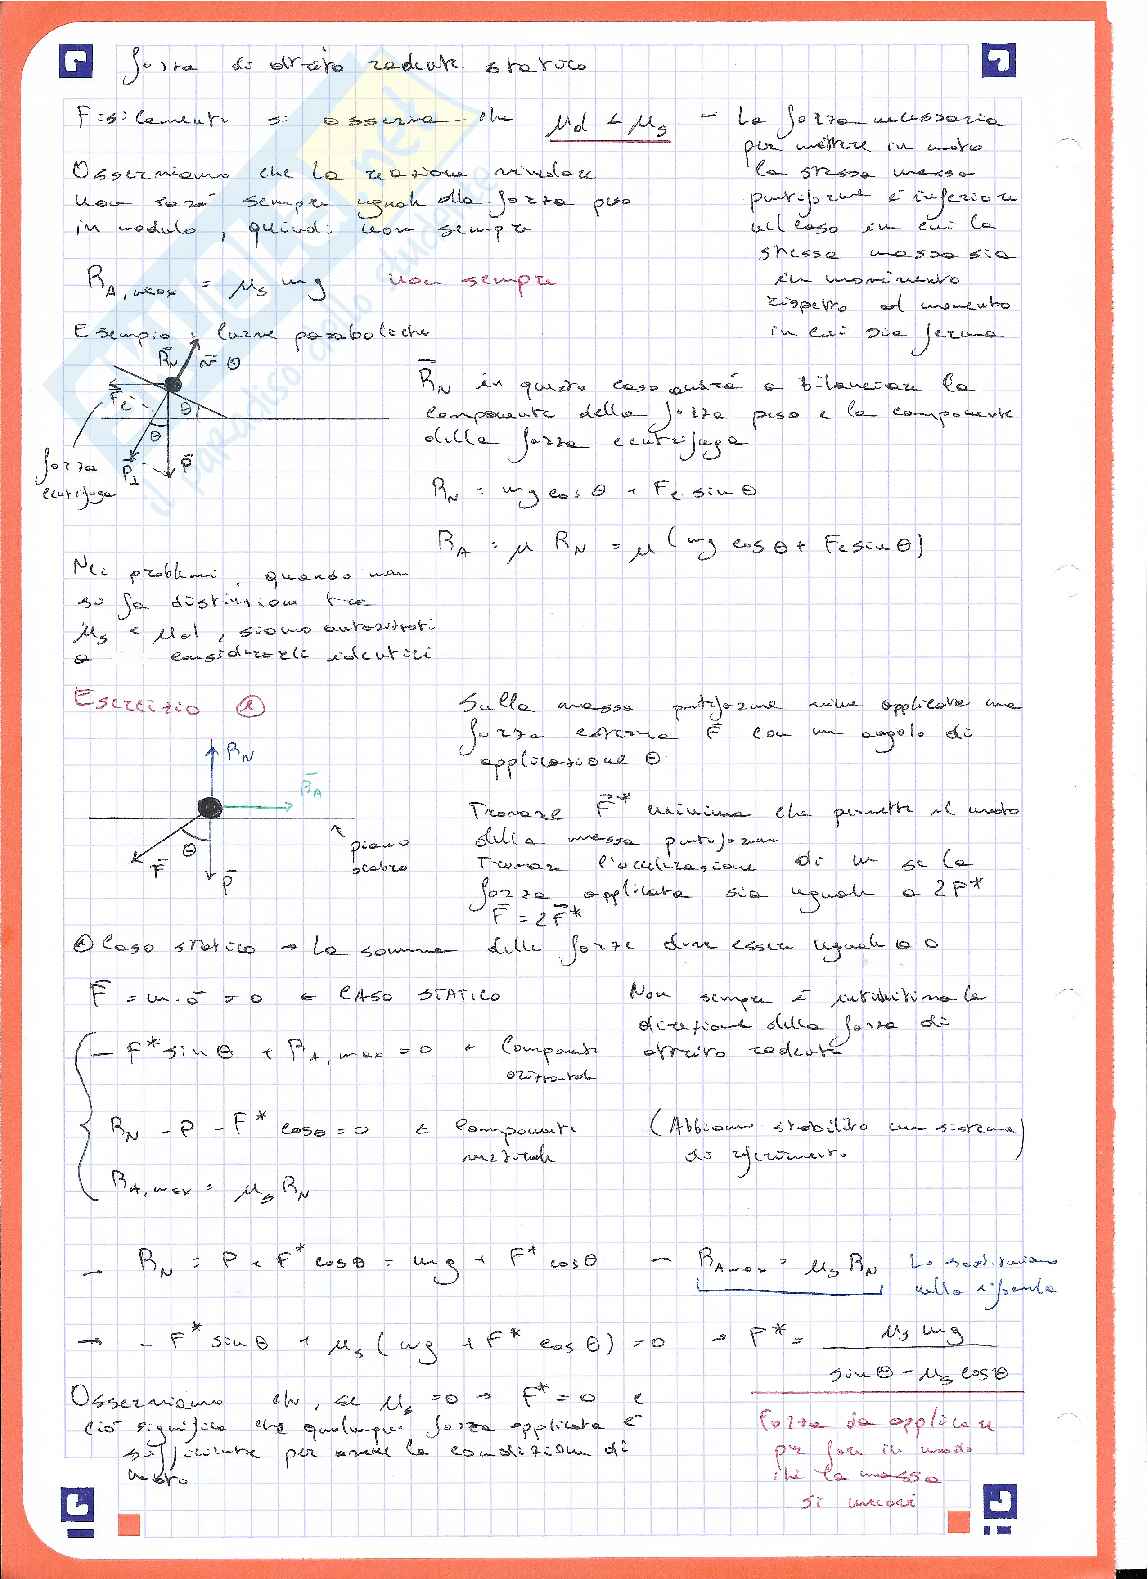 forza di attrito radente statico
Fisicamente si osserva che μd < μs
→ La forza necessaria
per mettere in moto
la stessa massa
puntiforme è inferiore
nel caso in cui la
stessa massa sia
in movimento
rispetto al momento
in cui sia ferma
Osserviamo che la reazione vincolare
non sarà sempre uguale alla forza peso
in modulo, quindi non sempre
R_A,max = μs mg non sempre
Esempio: Curve paraboliche
R_N N θ
F_c θ
θ
P_⊥ P
forza
centrifuga
R_N in questo caso andrà a bilanciare la
componente della forza peso e la componente
della forza centrifuga
R_N = mg cos θ + F_c sin θ
R_A = μ R_N = μ (mg cos θ + F_c sin θ)
Nei problemi, quando non
si fa distinzione tra
μs e μd, siamo autorizzati
a considerarli identici
Esercizio ①
R_N
R_A
θ
F P
piano
scabro
Sulla massa puntiforme viene applicata una
forza esterna F con un angolo di
applicazione θ
Trovare F* minima che permette il moto
della massa puntiforme
Trovare l'accelerazione di m se la
forza applicata sia uguale a 2F*
F = 2F*
① Caso statico → La somma delle forze deve essere uguale a 0
F = m·a = 0 ← CASO STATICO
Non sempre è intuitiva la
direzione della forza di
attrito radente
- F* sin θ + R_A,max = 0 ← Componente
orizzontale
R_N - P - F* cos θ = 0 ← Componente
verticale
(Abbiamo stabilito un sistema)
di riferimento
R_A,max = μs R_N
→ R_N = P + F* cos θ = mg + F* cos θ → R_A,max = μs R_N Lo sostituiamo
nella
→ - F* sin θ + μs (mg + F* cos θ) = 0 → F* = μs mg
sin θ - μs cos θ
Osserviamo che, se μs = 0 → F* = 0 e
ciò significa che qualunque forza applicata è
sufficiente per avere la condizione di
moto
Forza da applicare
per fare in modo
che la massa
si muova
il paradiso dello studente